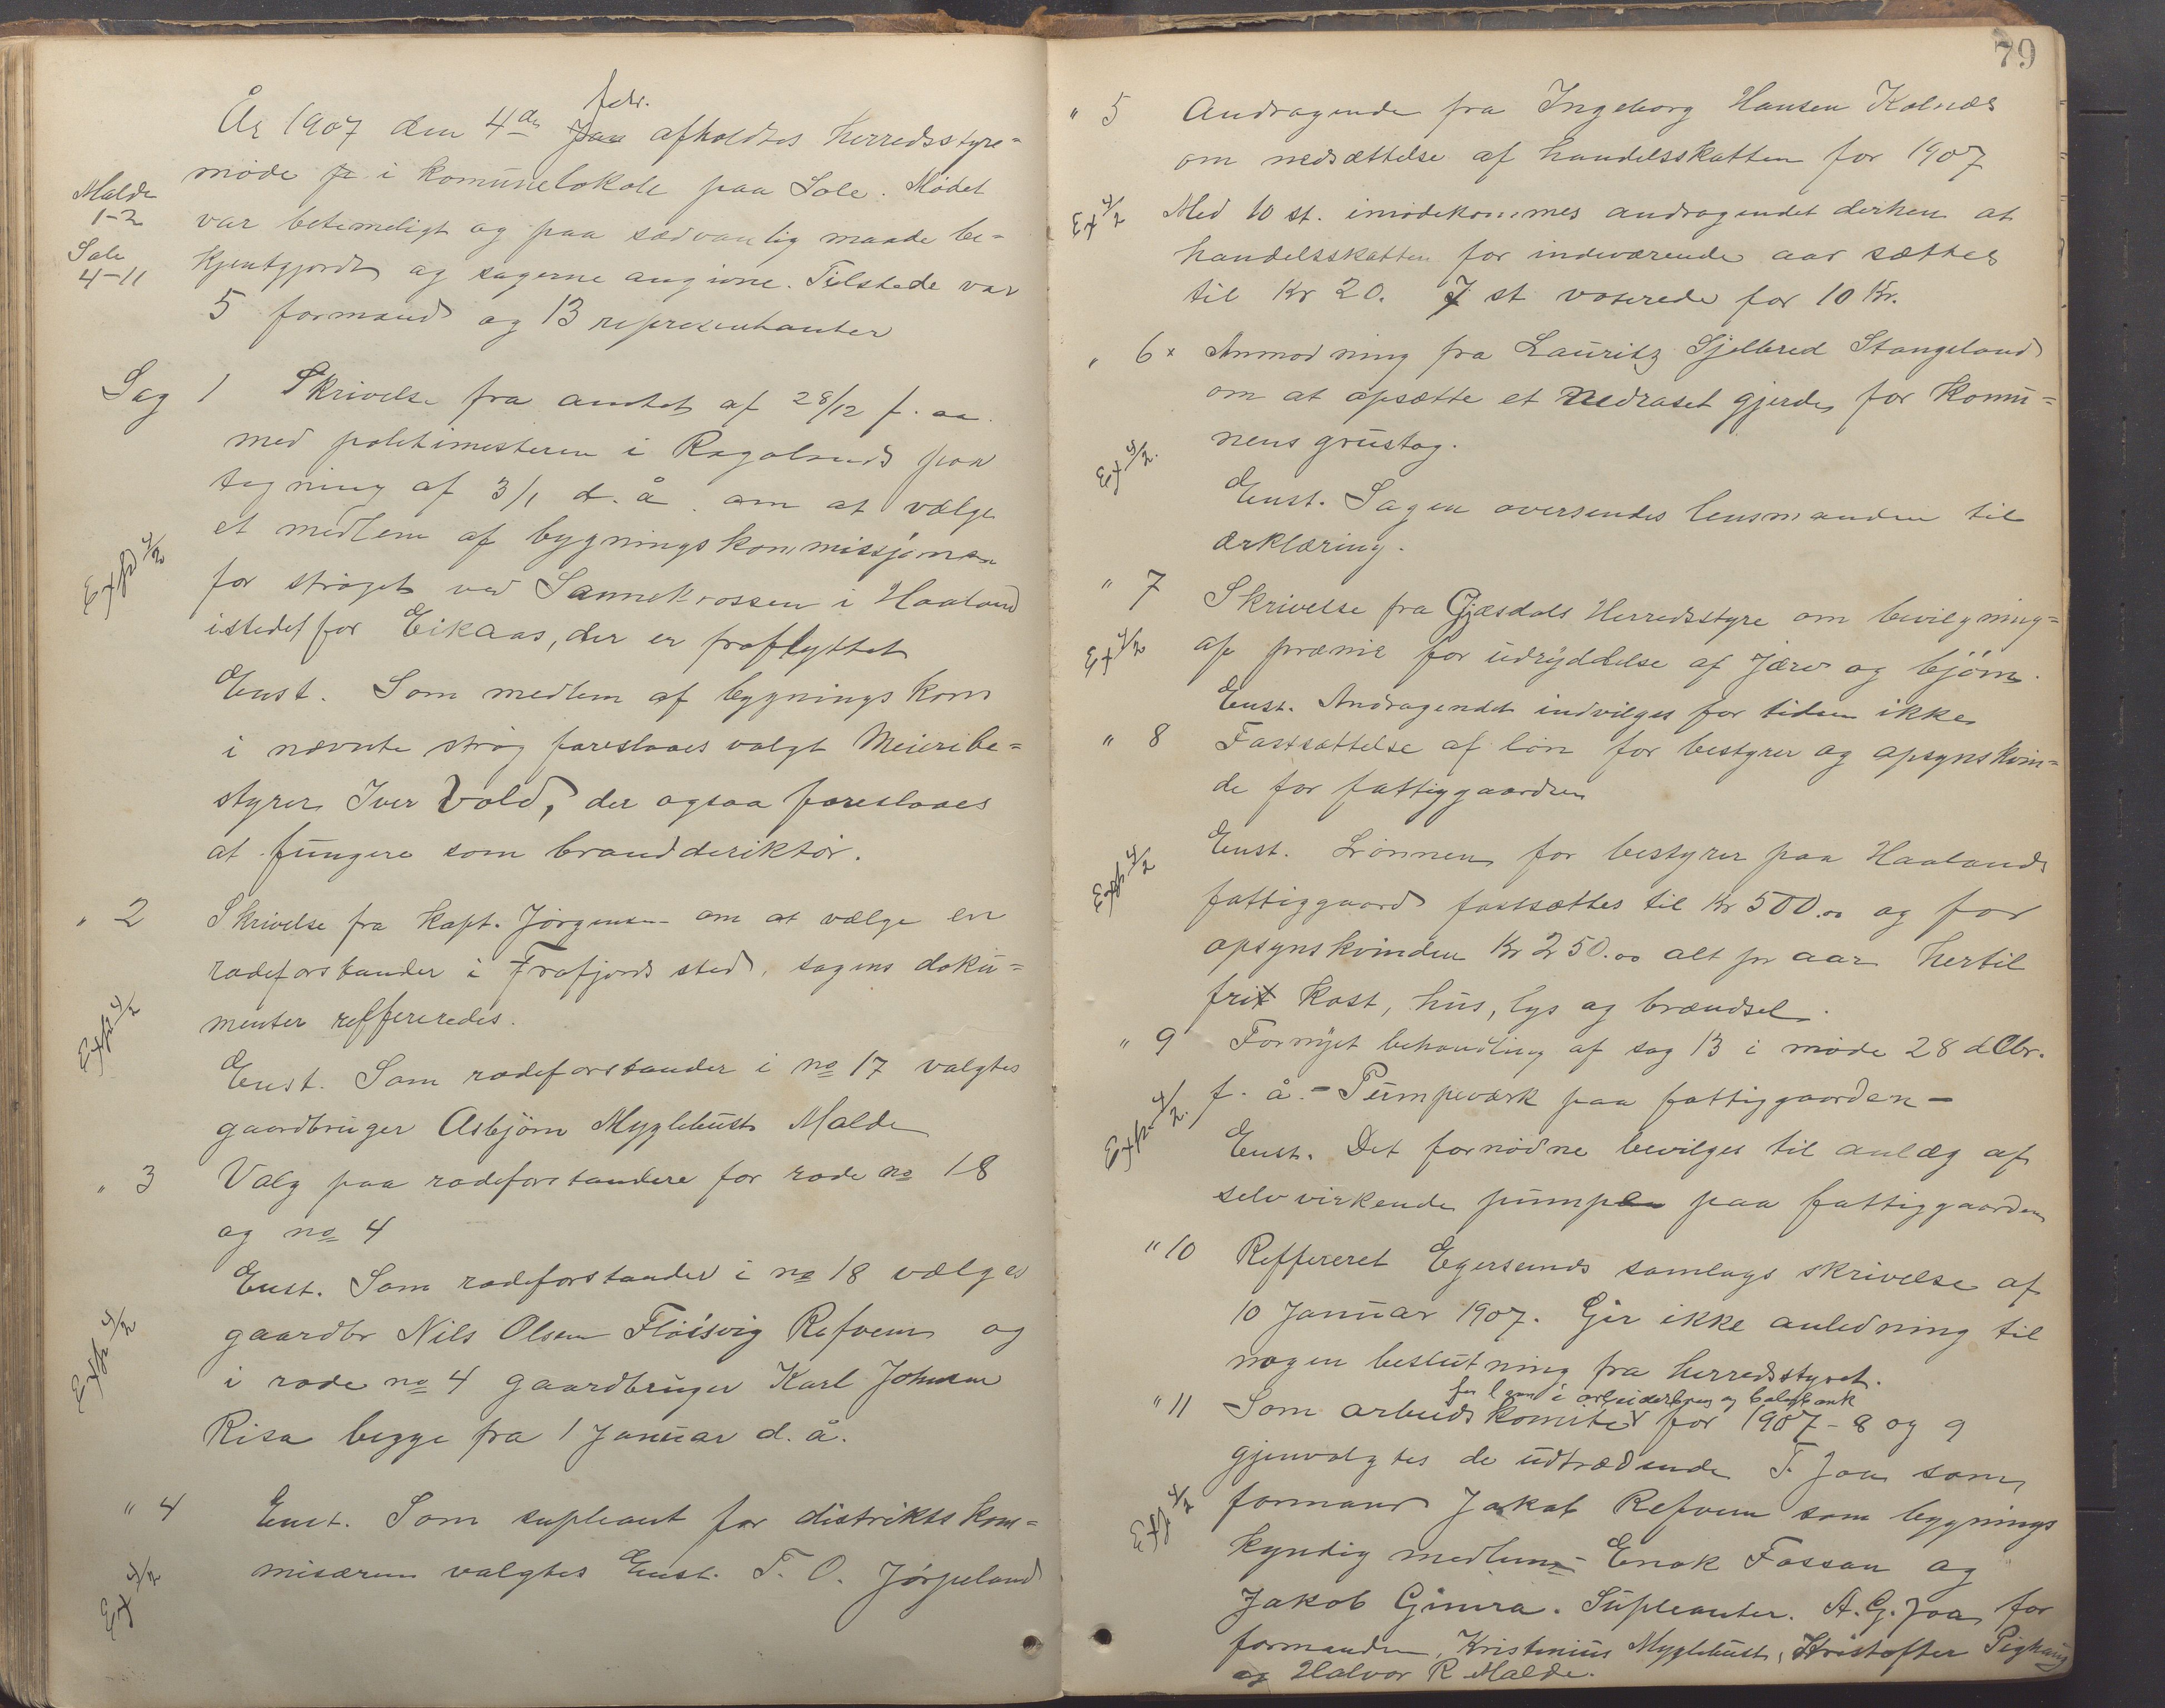 febr.
År 1907 den 4de Jan afholdtes herredsstyre=
møde p i komunelokale paa Sole. Mødet
Malde
1-2
var betimeligt og paa sædvanlig maade be=
Sole
4-11
kjentgjordt og sagerne angivne. Tilstede var
5 formænd og 13 repræsentanter
Sag 1 Skrivelse fra amtet af 28/12 f. aa.
med politimesteren i Rogalands paa
tegning af 3/1 d. å. om at vælge
et medlem af bygningskommissjonen
Exp 4/2
for strøget ved Sannekrossen i Haaland
istedet for Eikaas, der er fraflyttet
Enst. Som medlem af bygningskom
i nævnte strøg foreslaaes valgt Meieribe=
styrer Iver Vold, der ogsaa foreslaaes
at fungere som branddirektør.
" 2 Skrivelse fra kapt. Jørgensen om at vælge en
rodeforstander i Frafjords sted, sagens doku=
Exp 4/2
menter reffereredes.
Enst. Som rodeforstander i no 17 valgtes
gaardbruger Asbjørn Myglebust Malde
" 3 Valg paa rodeforstandere for rode no 18
og no 4
Enst. Som rodeforstander i no 18 vælges
Exp 4/2
gaardbr Nils Olsen Fløisvig Refvem og
i rode no 4 gaardbruger Karl Johnsen
Risa begge fra 1 Januar d. å.
" 4 Enst. Som supleant for distriktskom=
Ex 4/2
misæren valgtes Enst. T. O. Jørpeland
79
" 5 Andragende fra Ingeborg Hansen Kolnes
om nedsættelse af handelsskatten for 1907
Ex 4/2
Med 10 st. imødekommes andragendet derhen at
handelsskatten for indeværende aar sættes
til Kr 20. 7 st voterede for 10 Kr.
" 6 x Anmodning fra Lauritz Sjelbred Stangeland
om at opsætte et nedraset gjerde for komu=
Ex 4/2.
nens grustag.
Enst. Sagen oversendes lensmanden til
ærklæring.
" 7 Skrivelse fra Gjæsdals Herredsstyre om bevilgning=
Ex 4/2
af præmie for udryddelse af Jærv og bjørn.
Enst. Andragendet indvilges for tiden ikke
" 8 Fastsættelse af løn for bestyrer og opsynskvin=
de for fattiggaarden
Enst. Lønnen for bestyrer paa Haalands
Exp 4/2
fattiggaard fastsættes til Kr 500.00 og for
opsynskvinden Kr 250.00 alt pr aar hertil
frit kost, hus, lys og brændsel.
" 9 Fornyet behandling af sag 13 i møde 28 dCbr.
f. å. - Pumpeværk paa fattiggaarden -
Exp 4/2.
Enst. Det fornødne bevilges til anlæg af
selvvirkende pumpe paa fattiggaarden
" 10 Reffereret Egersunds samlags skrivelse af
10 Januar 1907. Gir ikke anledning til
nogen beslutning fra herredsstyret.
for laan i arbeiderbrug og boligbank
" 11 Som arbeidskomite for 1907-8 og 9
gjenvalgtes de udtrædende T. Joa som
Exp 4/2
formand Jakob Refvem som bygnings
kyndig medlem - Enok Fossan og
Jakob Gimra. Supleanter. A. G. Joa for
formanden, Kristinius Myglebust, Kristoffer Pighaug
og Halvor R Malde.